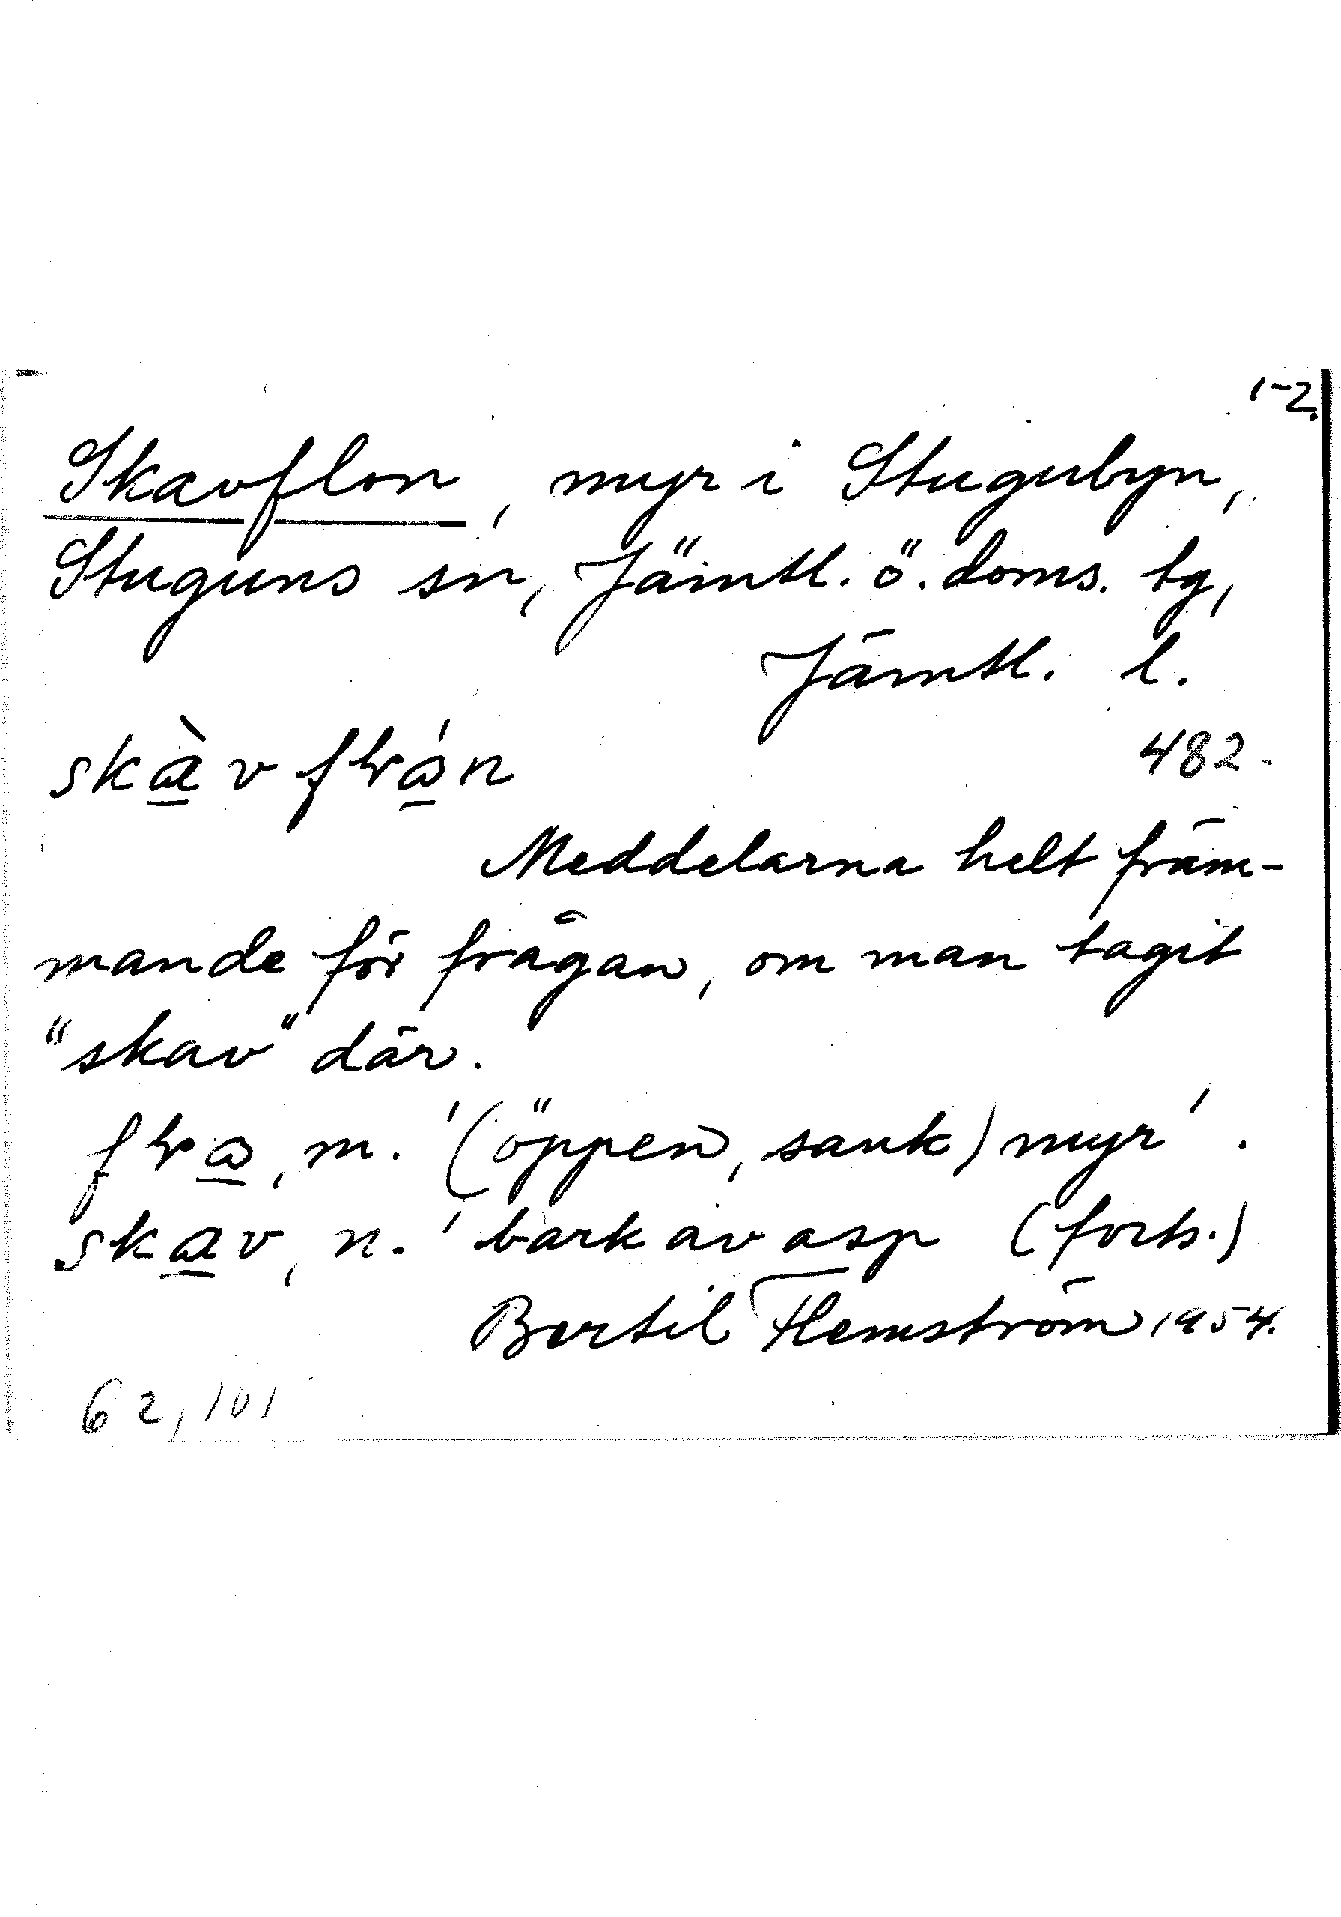 1-2.
Skavflon, myr i Stugubyn,
Stuguns sn, Jämtl. ö. doms. tg,
Jämtl. l.
482.
Meddelarna helt främ-
mande för frågan, om man tagit
"skav" där.
m. '(öppen, sank) myr'.
skav, n. 'bark av asp (forts.)
Bertil Flemström 1954.
62, 101